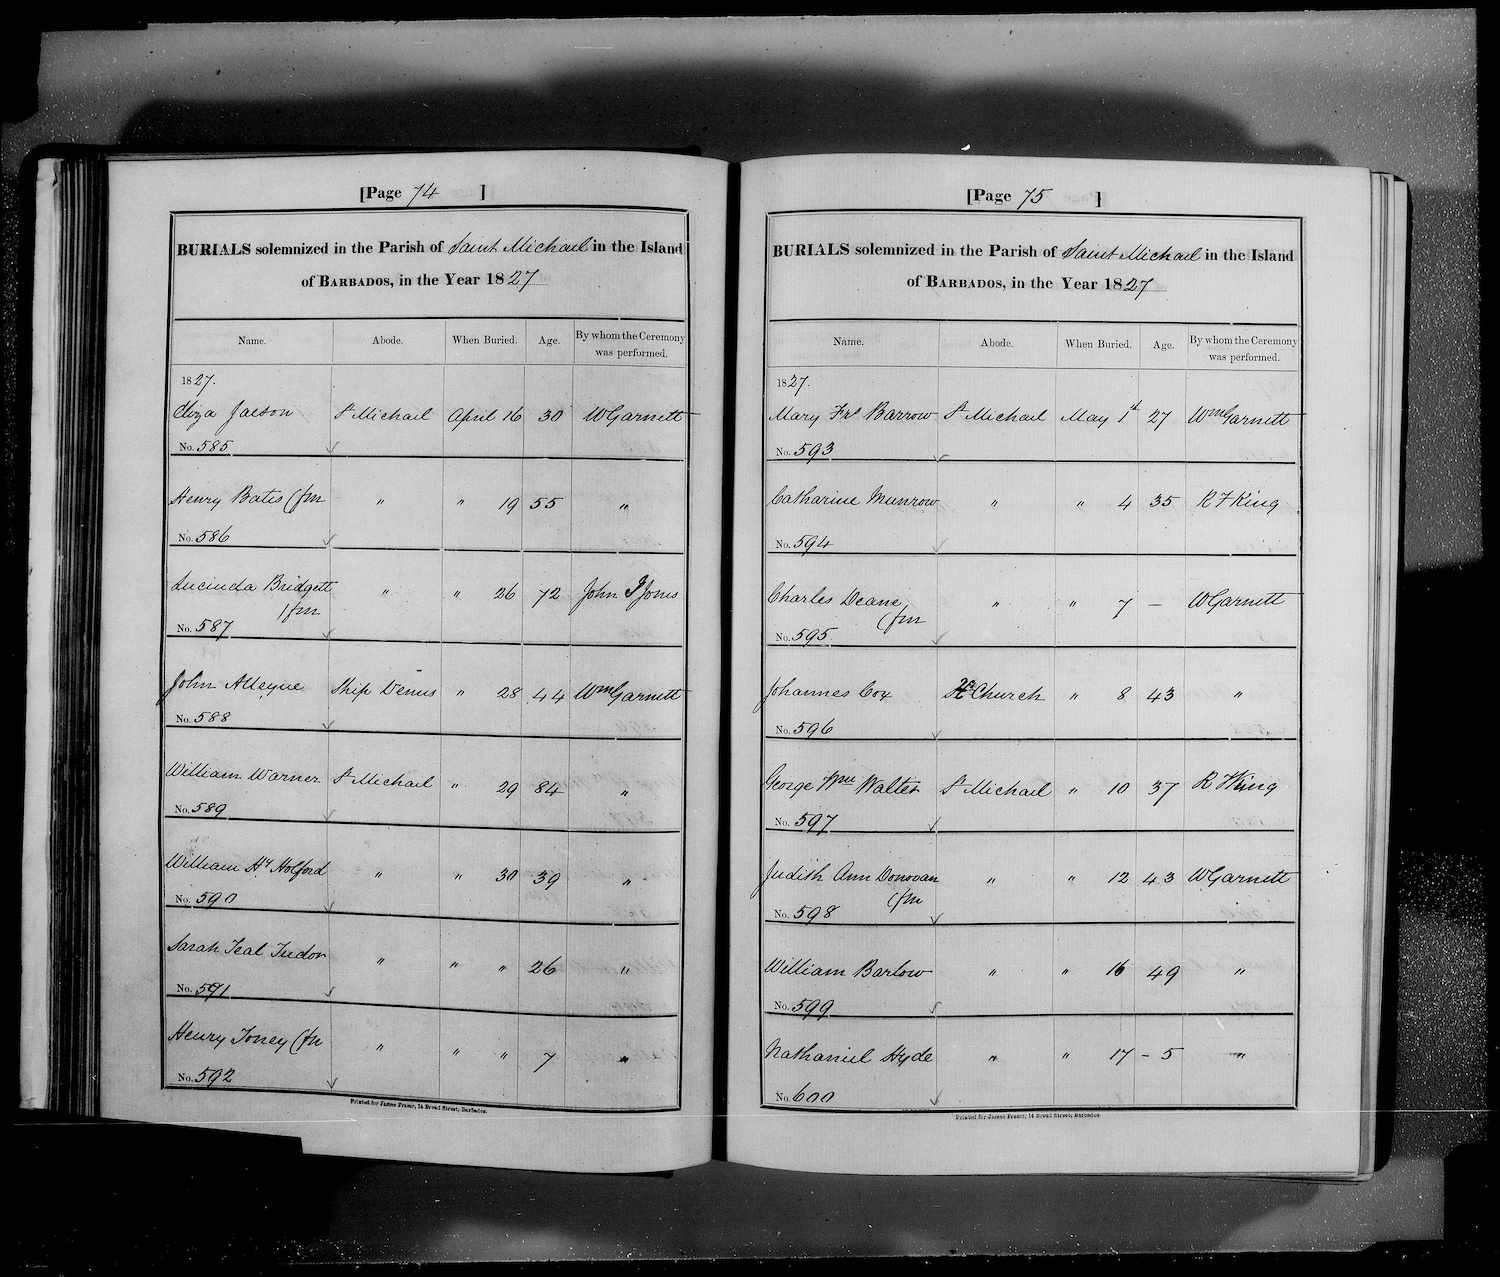 [Page 74 ]
BURIALS solemnized in the Parish of Saint Michael in the Island
of BARBADOS, in the Year 1827
Name. Abode. When Buried. Age. By whom the Ceremony was performed.
1827.
Eliza Jackson St Michael April 16 30 WGarnett
No. 585
Henry Bates (fm " " 19 55 "
No. 586
Lucinda Bridgett " " 26 72 John I Jones
(fm
No. 587
John Alleyne Ship Venus " 28 44 WmGarnett
No. 588
William Warner St Michael " 29 84 "
No. 589
William Hy Holford " " 30 39 "
No. 590
Sarah Teal Tudor " " " 26 "
No. 591
Henry Toney (fm " " " 7 "
No. 592
Printed for James Fraser, 14 Broad Street, Barbados.
[Page 75 ]
BURIALS solemnized in the Parish of Saint Michael in the Island
of BARBADOS, in the Year 1827
Name. Abode. When Buried. Age. By whom the Ceremony was performed.
1827.
Mary Frs Barrow St Michael May 1st 27 WmGarnett
No. 593
Catharine Munrow " " 4 35 R F King
No. 594
Charles Deane " " 7 – WGarnett
(fm
No. 595
Johannes Cox Church " 8 43 "
No. 596
George Wm Walter St Michael " 10 37 R F King
No. 597
Judith Ann Donovan " " 12 43 WGarnett
(fm
No. 598
William Barlow " " 16 49 "
No. 599
Nathaniel Hyde " " 17 – 5 "
No. 600
Printed for James Fraser, 14 Broad Street, Barbados.